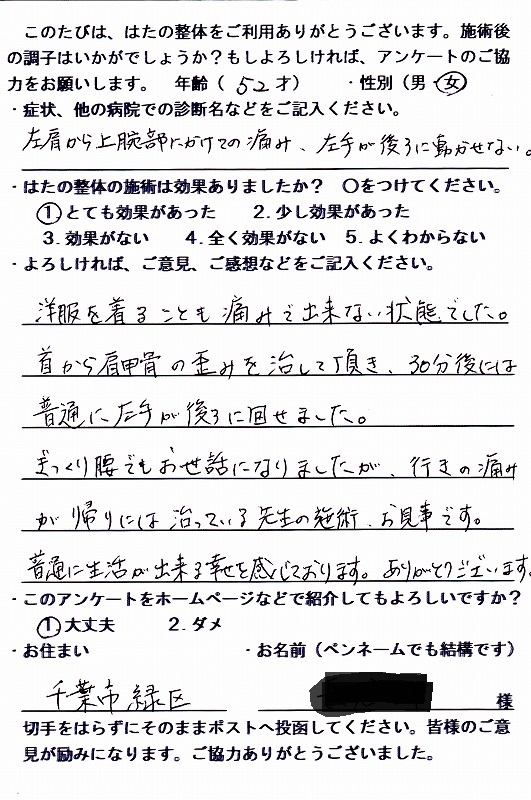 このたびは、はたの整体をご利用ありがとうございます。施術後
の調子はいかがでしょうか？もしよろしければ、アンケートのご協
力をお願いします。　年齢（ 52 才）　・性別（男・女）
・症状、他の病院での診断名などをご記入ください。
左肩から上腕部にかけての痛み、左手が後ろに動かせない。
・はたの整体の施術は効果ありましたか？　〇をつけてください。
①とても効果があった　　2. 少し効果があった
3. 効果がない　　4. 全く効果がない　5. よくわからない
・よろしければ、ご意見、ご感想などをご記入ください。
洋服を着ることも痛みで出来ない状態でした。
首から肩甲骨の歪みを治して頂き、30分後には
普通に左手が後ろに回せました。
ぎっくり腰でもお世話になりましたが、行きの痛み
が帰りには治っている先生の施術、お見事です。
普通に生活が出来る幸せを感じております。ありがとうございます。
・このアンケートをホームページなどで紹介してもよろしいですか？
①大丈夫　　2. ダメ
・お住まい　　　　　・お名前（ペンネームでも結構です）
千葉市緑区　　　　　　　　　　様
切手をはらずにそのままポストへ投函してください。皆様のご意
見が励みになります。ご協力ありがとうございました。